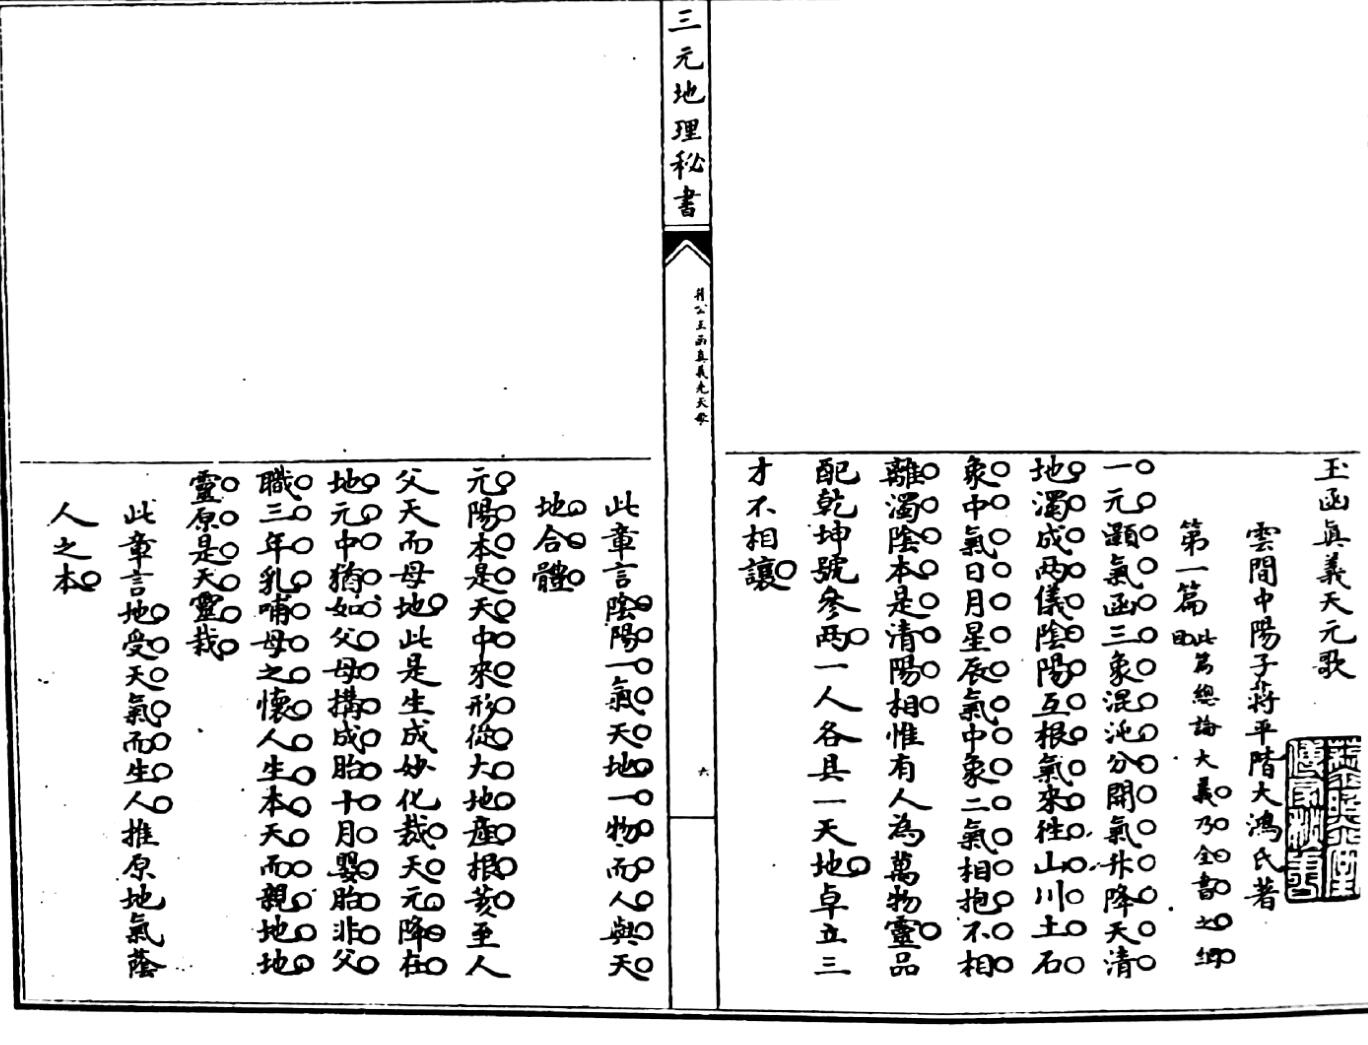 玉函真義天元歌
雲間中陽子蔣平階大鴻氏著
第一篇 此篇總論大義乃全書之綱
一元顥氣函三象混沌分開氣升降天清
地濁成两儀陰陽互根氣來往山川土石
象中氣日月星辰氣中象二氣相抱不相
離濁陰本是清陽相惟有人為萬物靈品
配乾坤號參两一人各具一天地卓立三
才不相讓
三元地理秘書
六
此章言陰陽一氣天地一物而人與天
地合體
元陽本是天中來形從大地產根荄至人
父天而母地此是生成妙化裁天元降在
地元中猶如父母搆成胎十月嬰胎非父
職三年乳哺母之懷人生本天而親地地
靈原是天靈栽
此章言地受天氣而生人推原地氣蔭
人之本